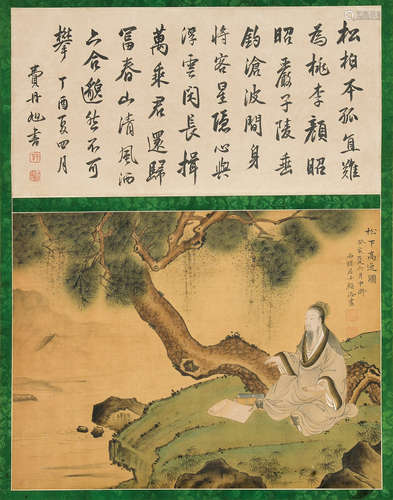 松柏本孤直難
為桃李顏昭
昭嚴子陵垂
釣滄波間身
將客星隱心與
浮雲閑長揖
萬乘君還歸
富春山清風洒
六合邈然不可
攀丁酉夏四月
費丹旭書
松下高逸圖